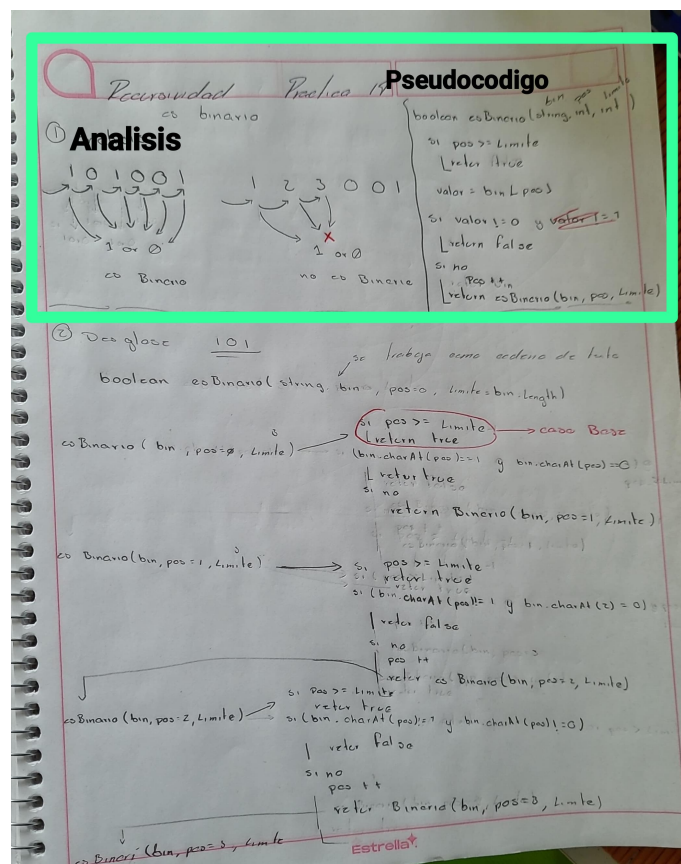 Recursividad Practica
Pseudocodigo
es binario
① Analisis
1 0 1 0 0 1
1 or 0
es Binario
1 2 3 0 0 1
x
1 or 0
no es Binario
bin pos limite
boolean esBinario(string, int, int)
si pos >= Limite
return true
valor = bin[pos]
si valor != 0 y valor != 1
return false
si no
pos ++
return esBinario(bin, pos, Limite)
② Desglose 101
se trabaja como cadena de
boolean esBinario( string bin, pos=0, limite=bin.length)
3
esBinario ( bin, pos=0, Limite)
si pos >= Limite
return true
caso Base
(bin.charAt(pos)==1 y bin.charAt(pos)==0)
retur true
si no
return Binario(bin, pos=1, Limite)
3
es Binario(bin, pos=1, Limite)
si pos >= Limite
retur true
si (bin.charAt(pos)!= 1 y bin.charAt(2) = 0)
retur false
si no
pos ++
retur es Binario(bin, pos=2, Limite)
esBinario(bin, pos=2, Limite)
si pos >= Limite
retur true
si (bin.charAt(pos)!=1 y bin.charAt(pos)!=0)
retur false
si no
pos ++
retur Binario(bin, pos=3, Limite)
es Binari (bin, pos=3, Limite
Estrella